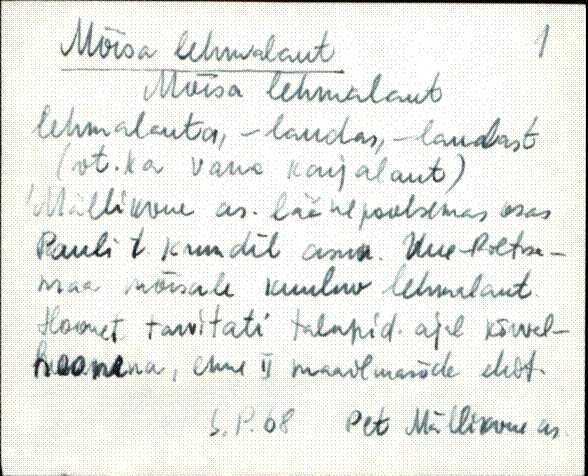 Mõisa lehmalaut
1
Mõisa lehmalaut
lehmalauta, -laudas, -laudast
(vt. ka vana karjalaut)
Mällikvere as. läänepoolsemas osas
Pauli t. krundil asuv. Uue-Põltsa-
maa mõisale kuuluv lehmalaut.
Hoonet tarvitati talupid. ajal kõrvel-
hoonena, enne II maailmasõda ehit.
P. 68 Plt Mällikvere as.